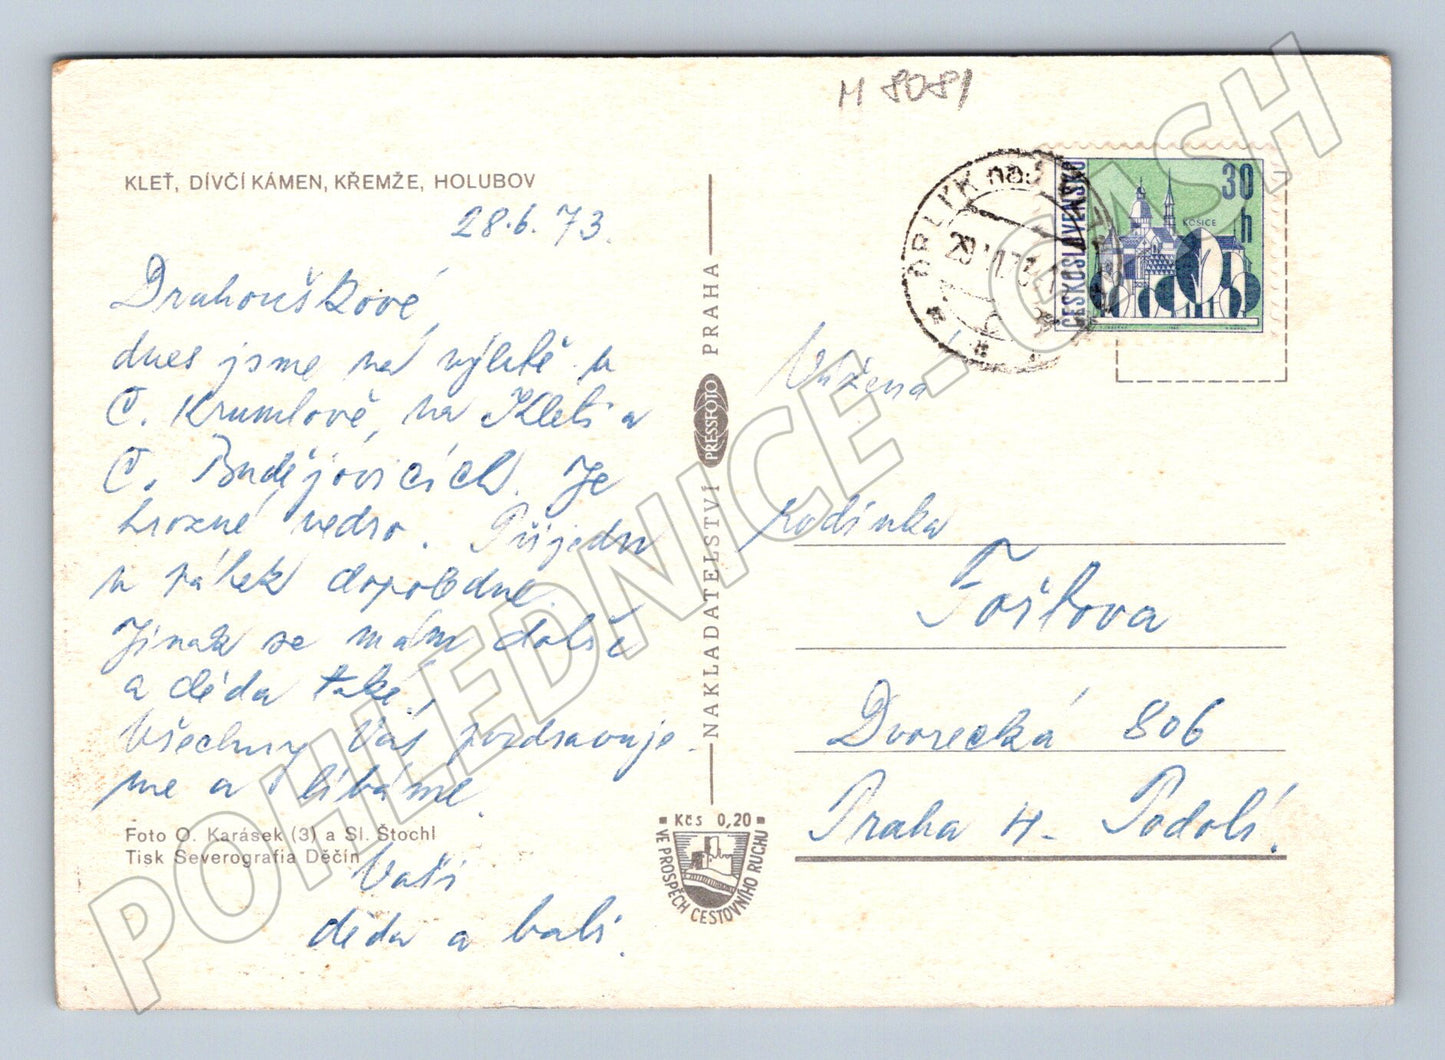 M 8081
KLEŤ, DÍVČÍ KÁMEN, KŘEMŽE, HOLUBOV
28.6.73.
Drahouškové,
dnes jsme na výletě v
Č. Krumlově, na Kleti a
Č. Budějovicích. Je
hrozné vedro. Přijedu
v pátek dopoledne.
Jinak se mám dobře
a děda také.
Všechny Vás pozdravuje-
me a líbáme.
Vaši
děda a babi.
Foto O. Karásek (3) a Sl. Štochl
Tisk Severografia Děčín
NAKLADATELSTVÍ PRESSFOTO PRAHA
Kčs 0,20
VE PROSPĚCH CESTOVNÍHO RUCHU
ORLÍK nad
ČESKOSLOVENSKO
30 h
KOŠICE
Vážená
Rodinka
Foštova
Dvorecká 806
Praha 4- Podolí.
POHLEDNICE-CASH